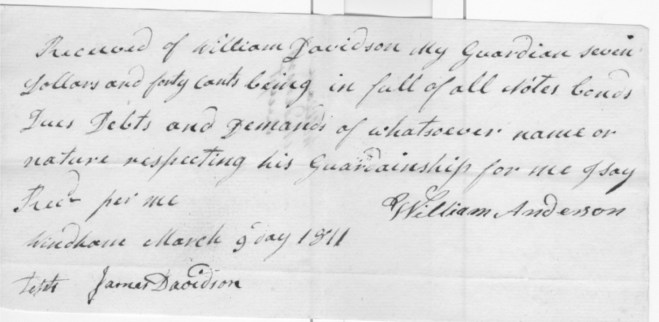 Received of William Davidson My Guardian seven
Dollars and forty cents being in full of all Notes bonds
Dues Debts and Demands of whatsoever name or
nature respecting his Guardainship for me I say
Recd per me William Anderson
Windham March 9 day 1811
Testt James Davidson